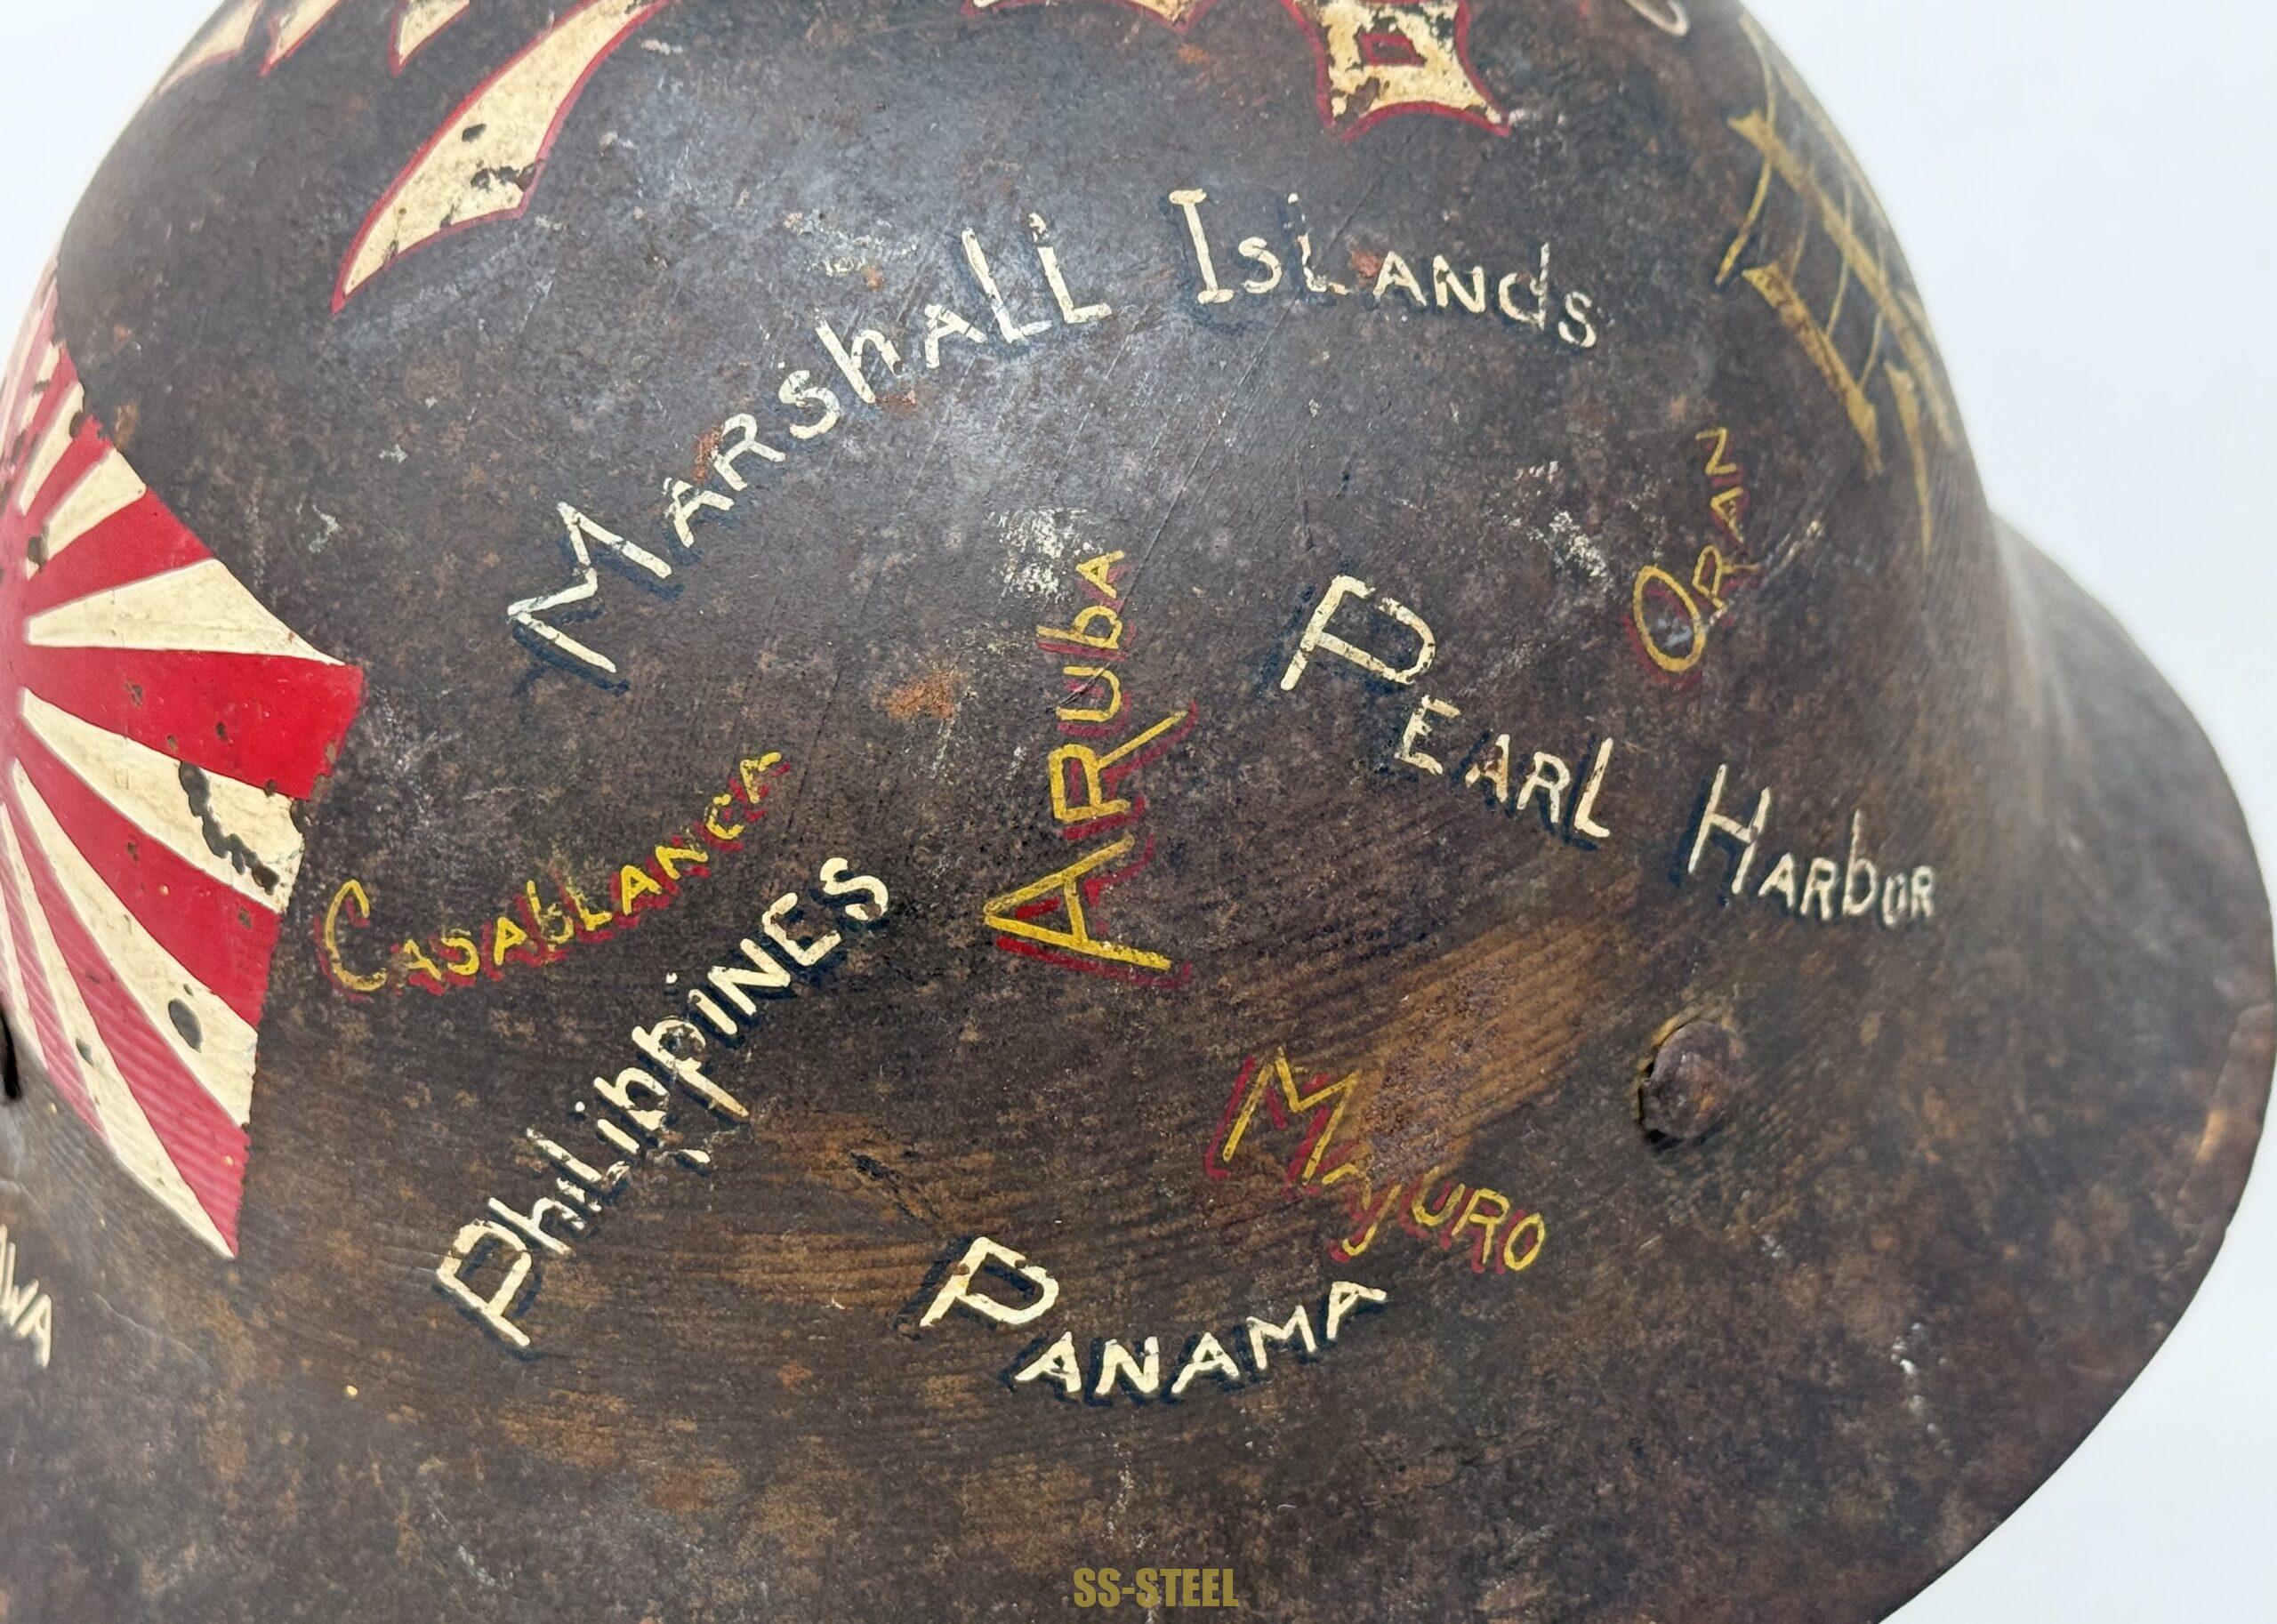 Marshall Islands
Oran
Aruba
Pearl Harbor
Casablanca
Philippines
Majuro
Panama
SS-STEEL